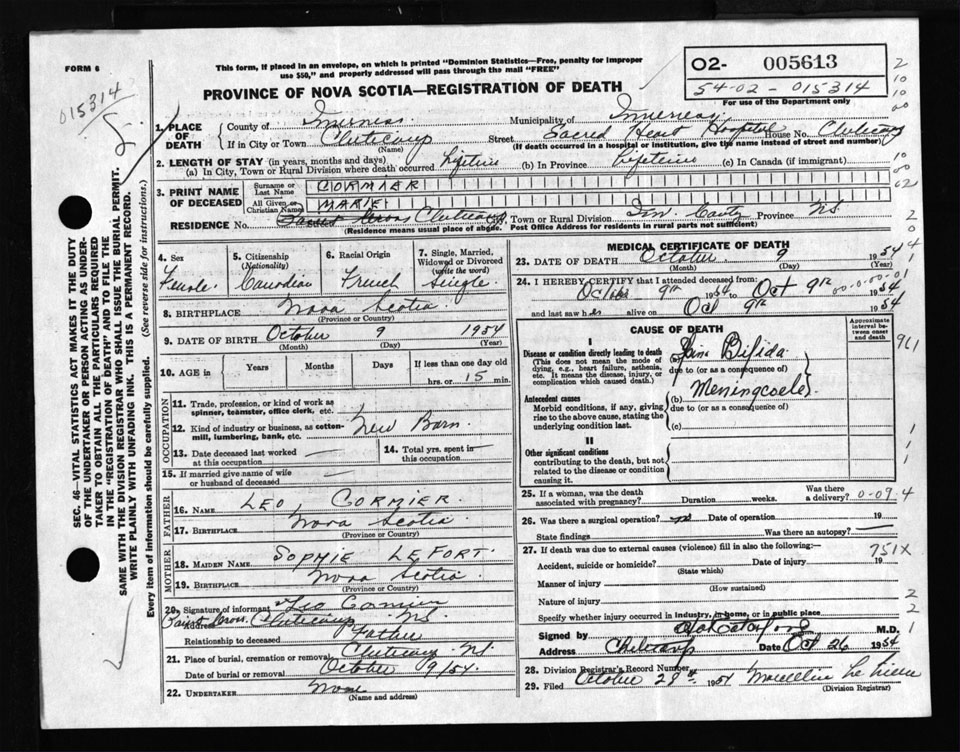 FORM 6
015314
This form, if placed in an envelope, on which is printed "Dominion Statistics—Free, penalty for improper
use $50," and properly addressed will pass through the mail "FREE"
PROVINCE OF NOVA SCOTIA—REGISTRATION OF DEATH
O2- 005613
54-02-015314
For use of the Department only
1. PLACE OF DEATH
County of Inverness Municipality of Inverness
If in City or Town Cheticamp (Name) Street Sacred Heart Hospital House No. Cheticamp
(If death occurred in a hospital or institution, give the name instead of street and number)
2. LENGTH OF STAY (in years, months and days)
(a) In City, Town or Rural Division where death occurred lifetime (b) In Province lifetime (c) In Canada (if immigrant)
3. PRINT NAME OF DECEASED
Surname or Last Name CORMIER
All Given or Christian Names MARIE
RESIDENCE No. Street Cross Cheticamp City, Town or Rural Division Inv. County Province NS
(Residence means usual place of abode. Post Office Address for residents in rural parts not sufficient)
4. Sex Female
5. Citizenship (Nationality) Canadian
6. Racial Origin French
7. Single, Married, Widowed or Divorced (write the word) Single
8. BIRTHPLACE Nova Scotia
(Province or Country)
9. DATE OF BIRTH October 9 1954
(Month) (Day) (Year)
10. AGE in Years Months Days If less than one day old
hrs. or 15 min.
OCCUPATION
11. Trade, profession, or kind of work as
spinner, teamster, office clerk, etc.
12. Kind of industry or business, as cotton-
mill, lumbering, bank, etc. New Born
13. Date deceased last worked
at this occupation
14. Total yrs. spent in
this occupation
15. If married give name of wife
or husband of deceased
FATHER
16. Name LEO CORMIER.
17. Birthplace Nova Scotia
MOTHER
18. Maiden Name SOPHIE LEFORT.
19. Birthplace Nova Scotia
(Province or Country)
20. Signature of informant Leo Cormier
Address Cross. Cheticamp NS
Relationship to deceased Father
21. Place of burial, cremation or removal Cheticamp NS
Date of burial or removal October 9/54
22. Undertaker None
(Name and address)
MEDICAL CERTIFICATE OF DEATH
23. DATE OF DEATH October 9 1954
(Month) (Day) (Year)
24. I HEREBY CERTIFY that I attended deceased from:
October 9th 1954 to Oct 9th 1954
and last saw her alive on Oct 9th 1954
CAUSE OF DEATH
Approximate interval between onset and death
I
Disease or condition directly leading to death
(This does not mean the mode of
dying, e.g., heart failure, asthenia,
etc. It means the disease, injury, or
complication which caused death.)
Bifida
due to (or as a consequence of)
Antecedent causes
Morbid conditions, if any, giving
rise to the above cause, stating the
underlying condition last.
(b) Meningcoele
due to (or as a consequence of)
(c)
II
Other significant conditions
contributing to the death, but not
related to the disease or condition
causing it.
961
25. If a woman, was the death
associated with pregnancy? Duration weeks. Was there a delivery? 0-09.4
26. Was there a surgical operation? no Date of operation 19
State findings Was there an autopsy?
27. If death was due to external causes (violence) fill in also the following:—
751X
Accident, suicide or homicide? Date of injury 19
(State which)
Manner of injury
(How sustained)
Nature of injury
Specify whether injury occurred in industry, in home, or in public place
Signed by M.D.
Address Cheticamp Date Oct 26 1954
28. Division Registrar's Record Number
29. Filed October 28th 1954
(Division Registrar)
SEC. 46—VITAL STATISTICS ACT MAKES IT THE DUTY
OF THE UNDERTAKER OR PERSON ACTING AS UNDER-
TAKER TO OBTAIN ALL THE PARTICULARS REQUIRED
IN THE "REGISTRATION OF DEATH" AND TO FILE THE
SAME WITH THE DIVISION REGISTRAR WHO SHALL ISSUE THE BURIAL PERMIT.
WRITE PLAINLY WITH UNFADING INK. THIS IS A PERMANENT RECORD.
Every item of information should be carefully supplied. (See reverse side for instructions.)